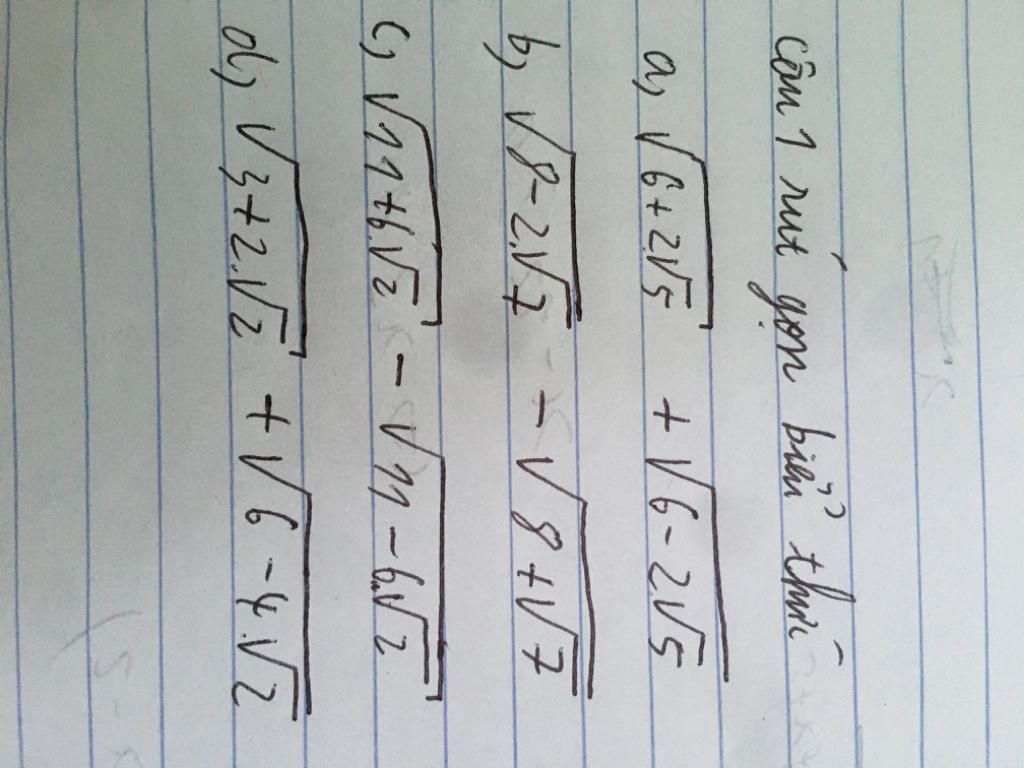 câu 1 rút gọn biểu thức
a, √(6+2√5) + √(6-2√5)
b, √(8-2.√7) - √(8+√7)
c, √(11+6√2) - √(11-6√2)
d, √(3+2.√2) + √(6-4.√2)